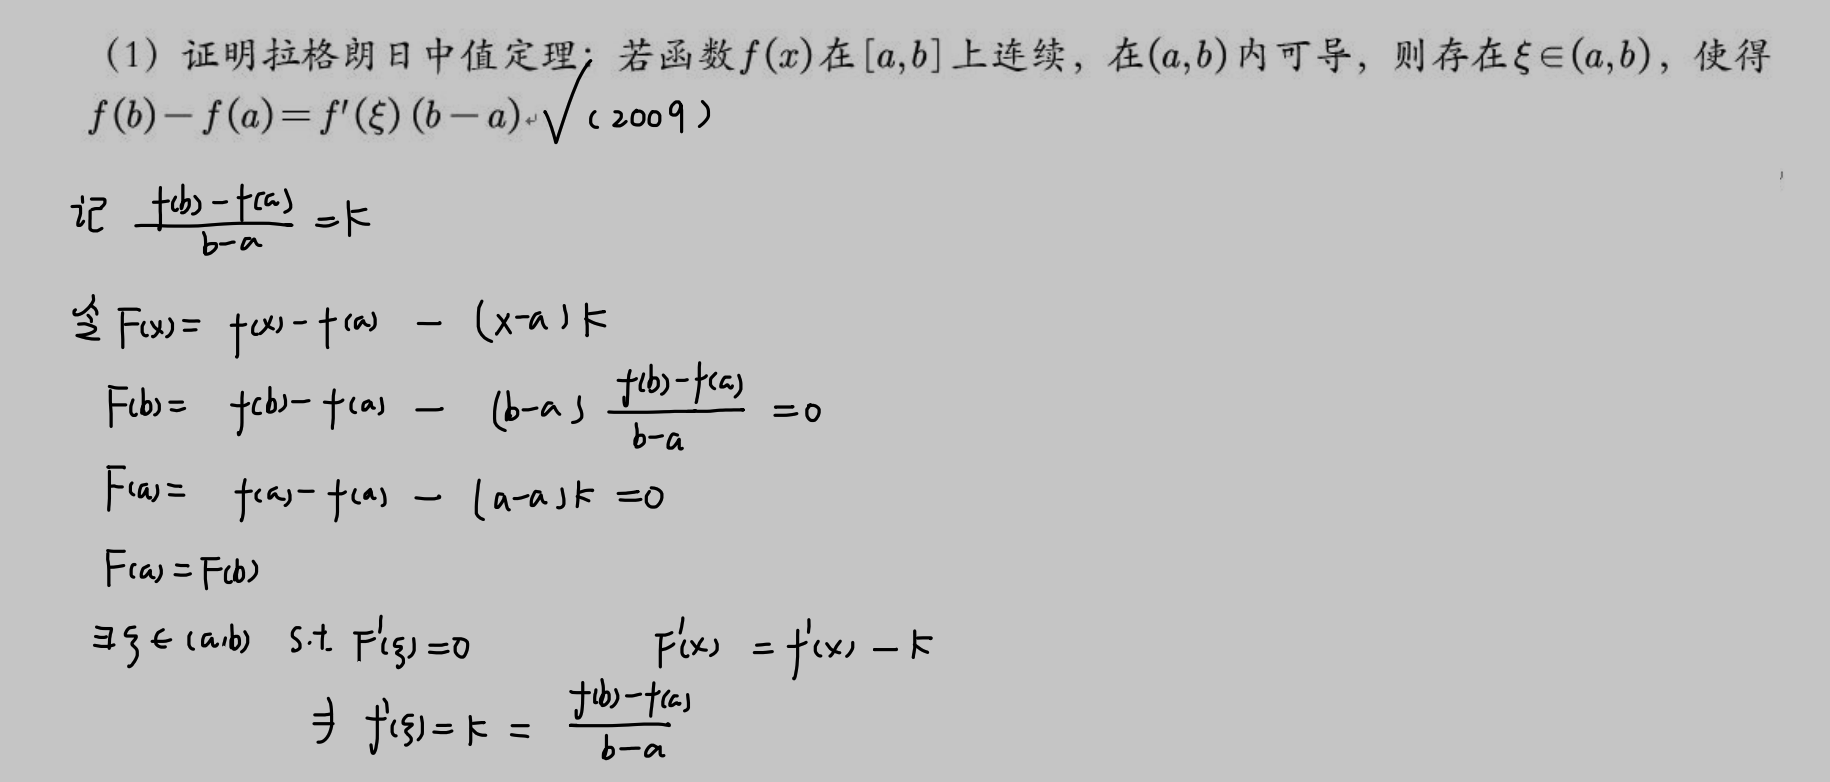 (1) 证明拉格朗日中值定理：若函数f(x)在[a,b]上连续，在(a,b)内可导，则存在ξ∈(a,b)，使得
f(b)－f(a)＝f′(ξ)(b－a)。√(2009)
记 (f(b)-f(a))/(b-a) = k
令 F(x)= f(x)-f(a) - (x-a)k
F(b)= f(b)-f(a) - (b-a) (f(b)-f(a))/(b-a) =0
F(a)= f(a)-f(a) - (a-a)k =0
F(a)=F(b)
∃ξ∈(a,b) s.t. F'(ξ)=0 F'(x) = f'(x) - k
∃ f'(ξ)=k = (f(b)-f(a))/(b-a)